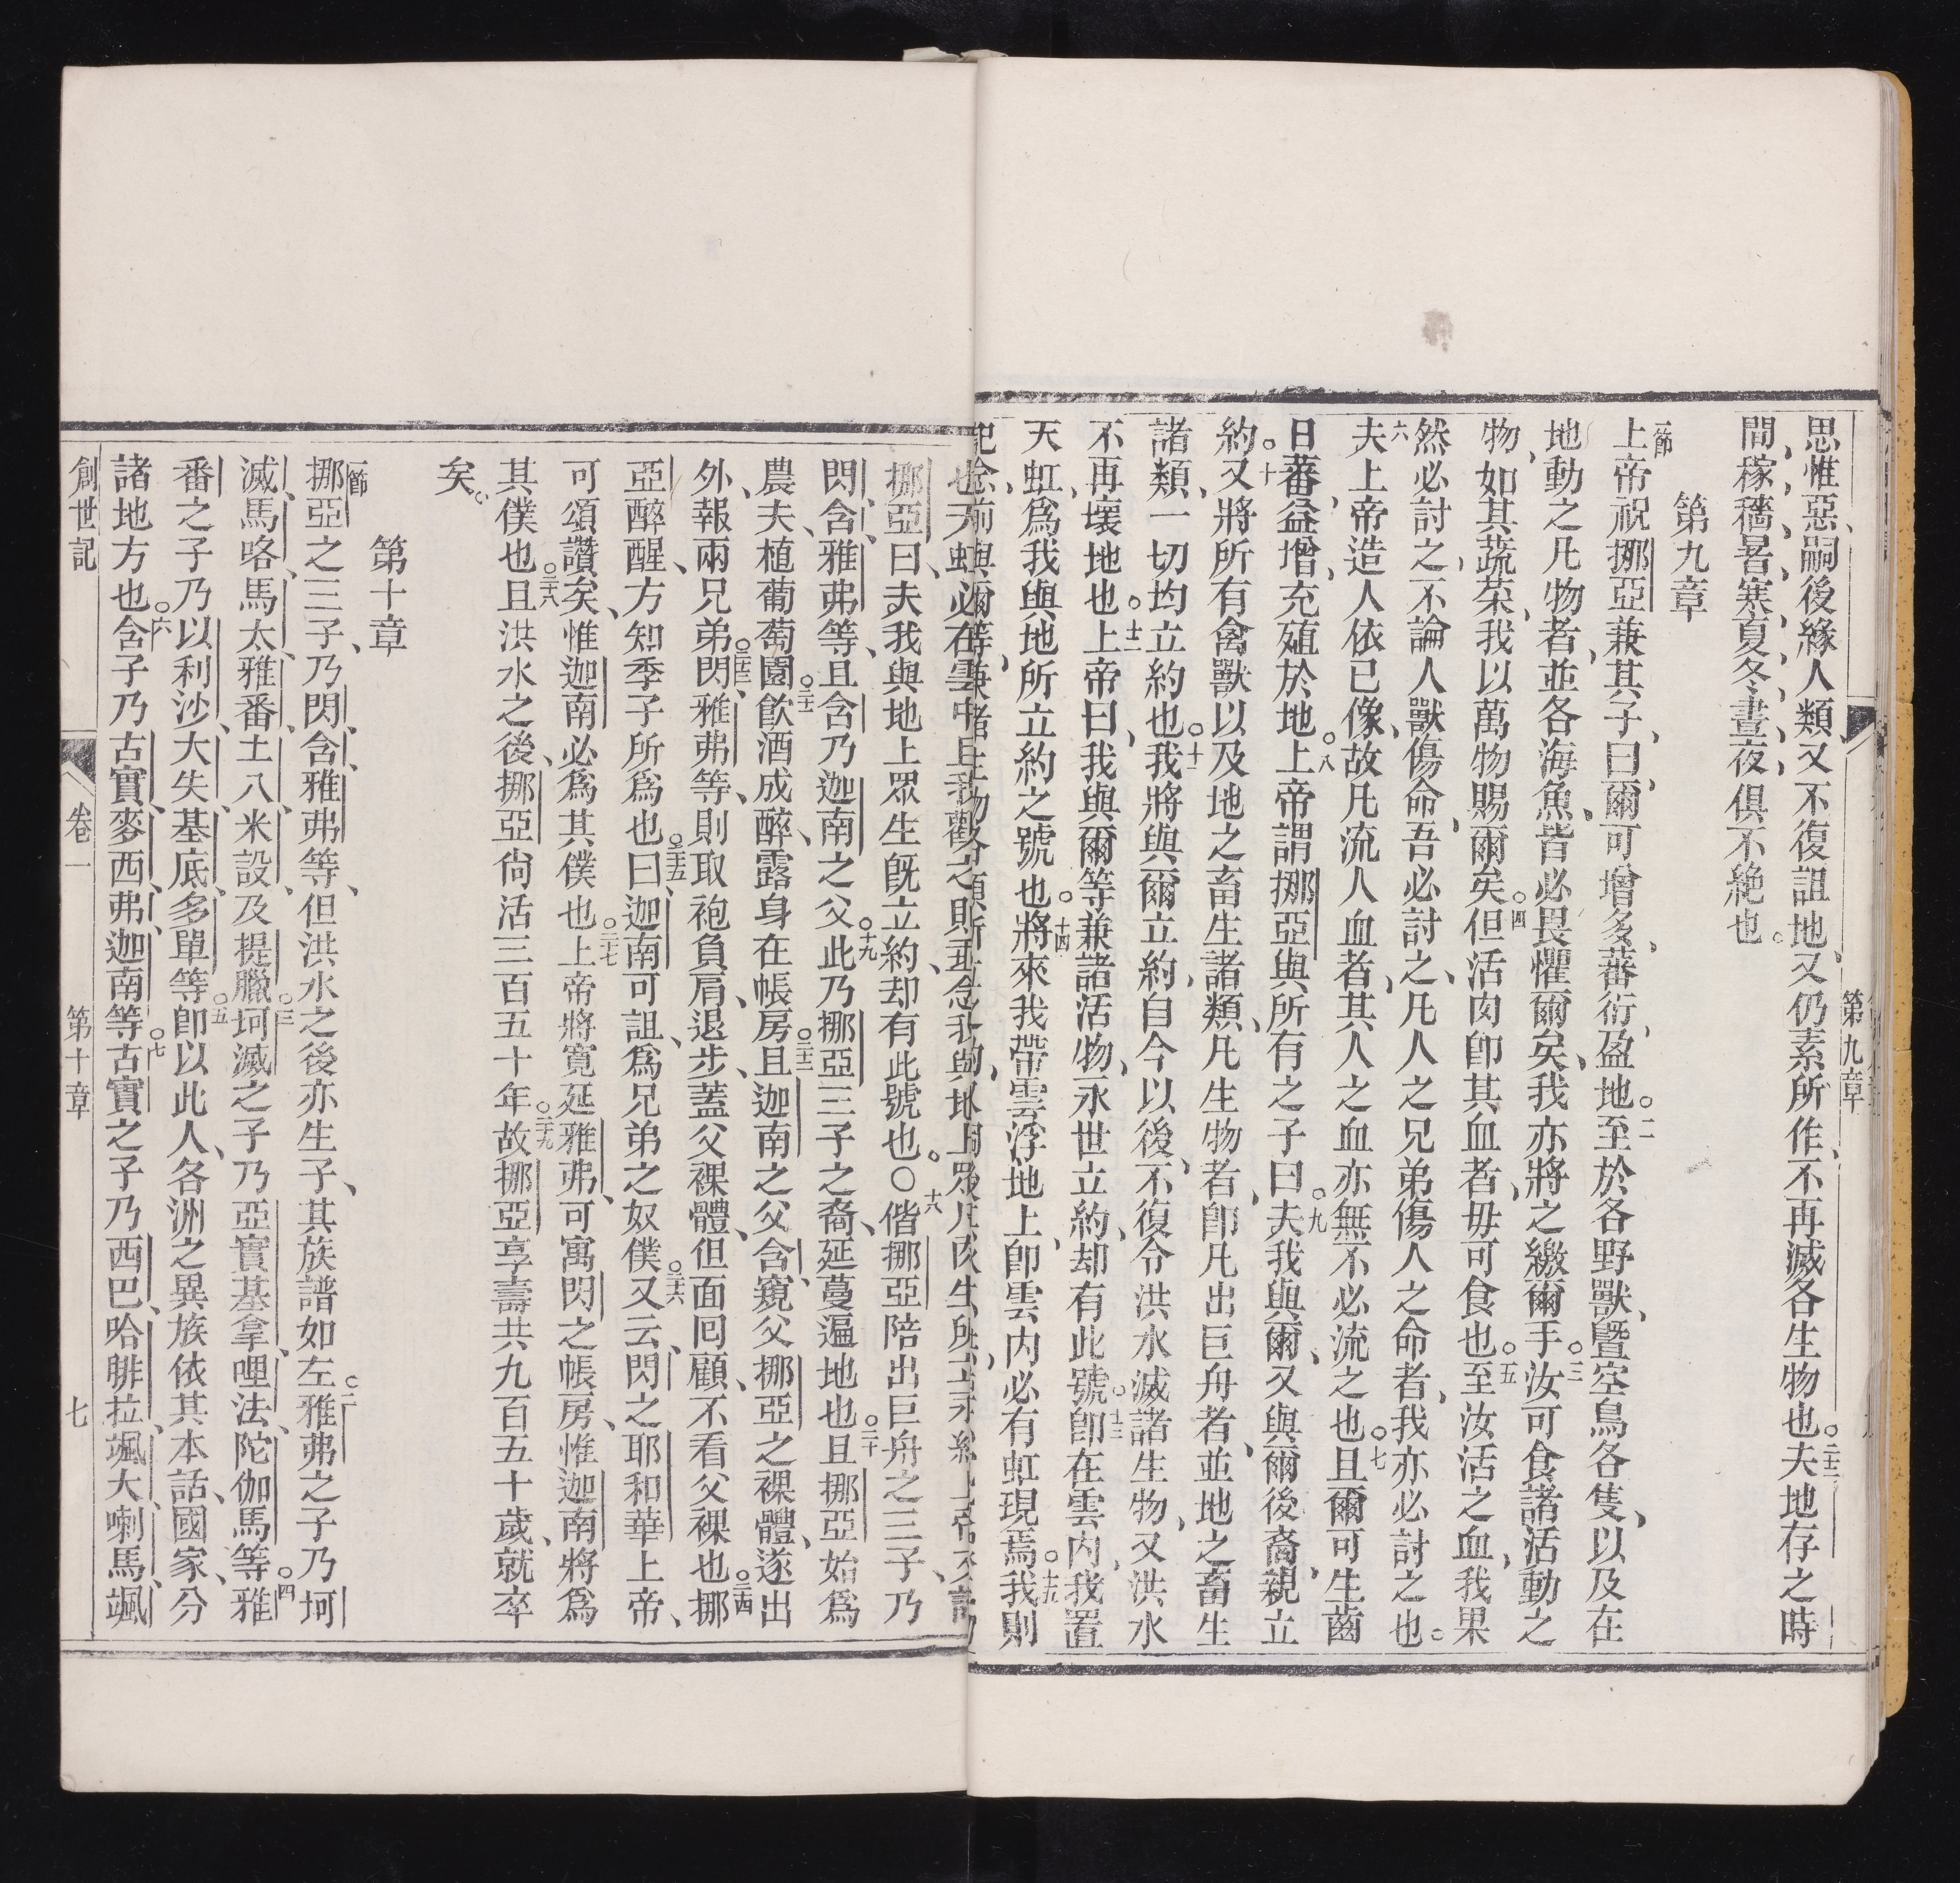 第九章
思惟惡、嗣後緣人類又不復詛地、又仍素所作、不再滅各生物也。二十二夫地存之時
間、稼穡、暑、寒、夏、冬、晝、夜、俱不絶也。
第九章
一節上帝祝挪亞兼其子、曰、爾可增多、蕃衍、盈地。○二至於各野獸、曁空鳥各隻、以及在
地動之凡物者、並各海魚、皆必畏懼爾矣、我亦將之繳爾手。○三汝可食諸活動之
物、如其蔬菜、我以萬物賜爾矣。○四但活肉卽其血者、毋可食也。○五至汝活之血、我果
然必討之、不論人獸傷命、吾必討之、凡人之兄弟傷人之命者、我亦必討之也。
六夫上帝造人依已像、故凡流人血者、其人之血亦無不必流之也。○七且爾可生齒
日蕃、益增、充殖於地。○八上帝謂挪亞與所有之子曰、○九夫我與爾、又與爾後裔、親立
約。○十又將所有禽獸以及地之畜生諸類、凡生物者、卽凡出巨舟者、並地之畜生
諸類、一切均立約也。○十一我將與爾立約、自今以後、不復令洪水滅諸生物、又洪水
不再壞地也。○十二上帝曰、我與爾等兼諸活物、永世立約、却有此號。○十三卽在雲内、我置
天虹、爲我與地所立約之號也。○十四將來我帶雲浮地上、卽雲内必有虹現焉。○十五我則
挪亞曰、夫我與地上眾生旣立約、却有此號也。○十八偕挪亞陪出巨舟之三子、乃
閃、含、雅弗等、且含乃迦南之父。○十九此乃挪亞三子之裔、延蔓遍地也。○二十且挪亞始爲
農夫、植葡萄園。○二十一飮酒成醉、露身在帳房。○二十二且迦南之父含、窺父挪亞之裸體、遂出
外、報兩兄弟。○二十三閃、雅弗等、則取袍負肩、退步、蓋父裸體、但面囘顧、不看父裸也。○二十四挪
亞醉醒、方知季子所爲也。○二十五曰、迦南可詛、爲兄弟之奴僕。○二十六又云、閃之耶和華上帝、
可頌讚矣、惟迦南必爲其僕也。○二十七上帝將寬延雅弗、可寓閃之帳房、惟迦南將爲
其僕也。○二十八且洪水之後、挪亞尙活三百五十年。○二十九故挪亞享壽共九百五十歲、就卒
矣。
第十章
一節挪亞之三子、乃閃、含、雅弗等、但洪水之後亦生子、其族譜如左。○二雅弗之子乃坷
滅、馬咯、馬太、雅番、土八、米設、及提臘。○三坷滅之子乃亞實基拿、哩法、陀伽馬等。○四雅
番之子乃以利沙、大失、基底、多單等。○五卽以此人、各洲之異族依其本話、國家、分
諸地方也。○六含子乃古實、麥西、弗、迦南等。○七古實之子乃西巴、哈腓拉、颯大、喇馬、颯
創世記 卷一 第十章 七